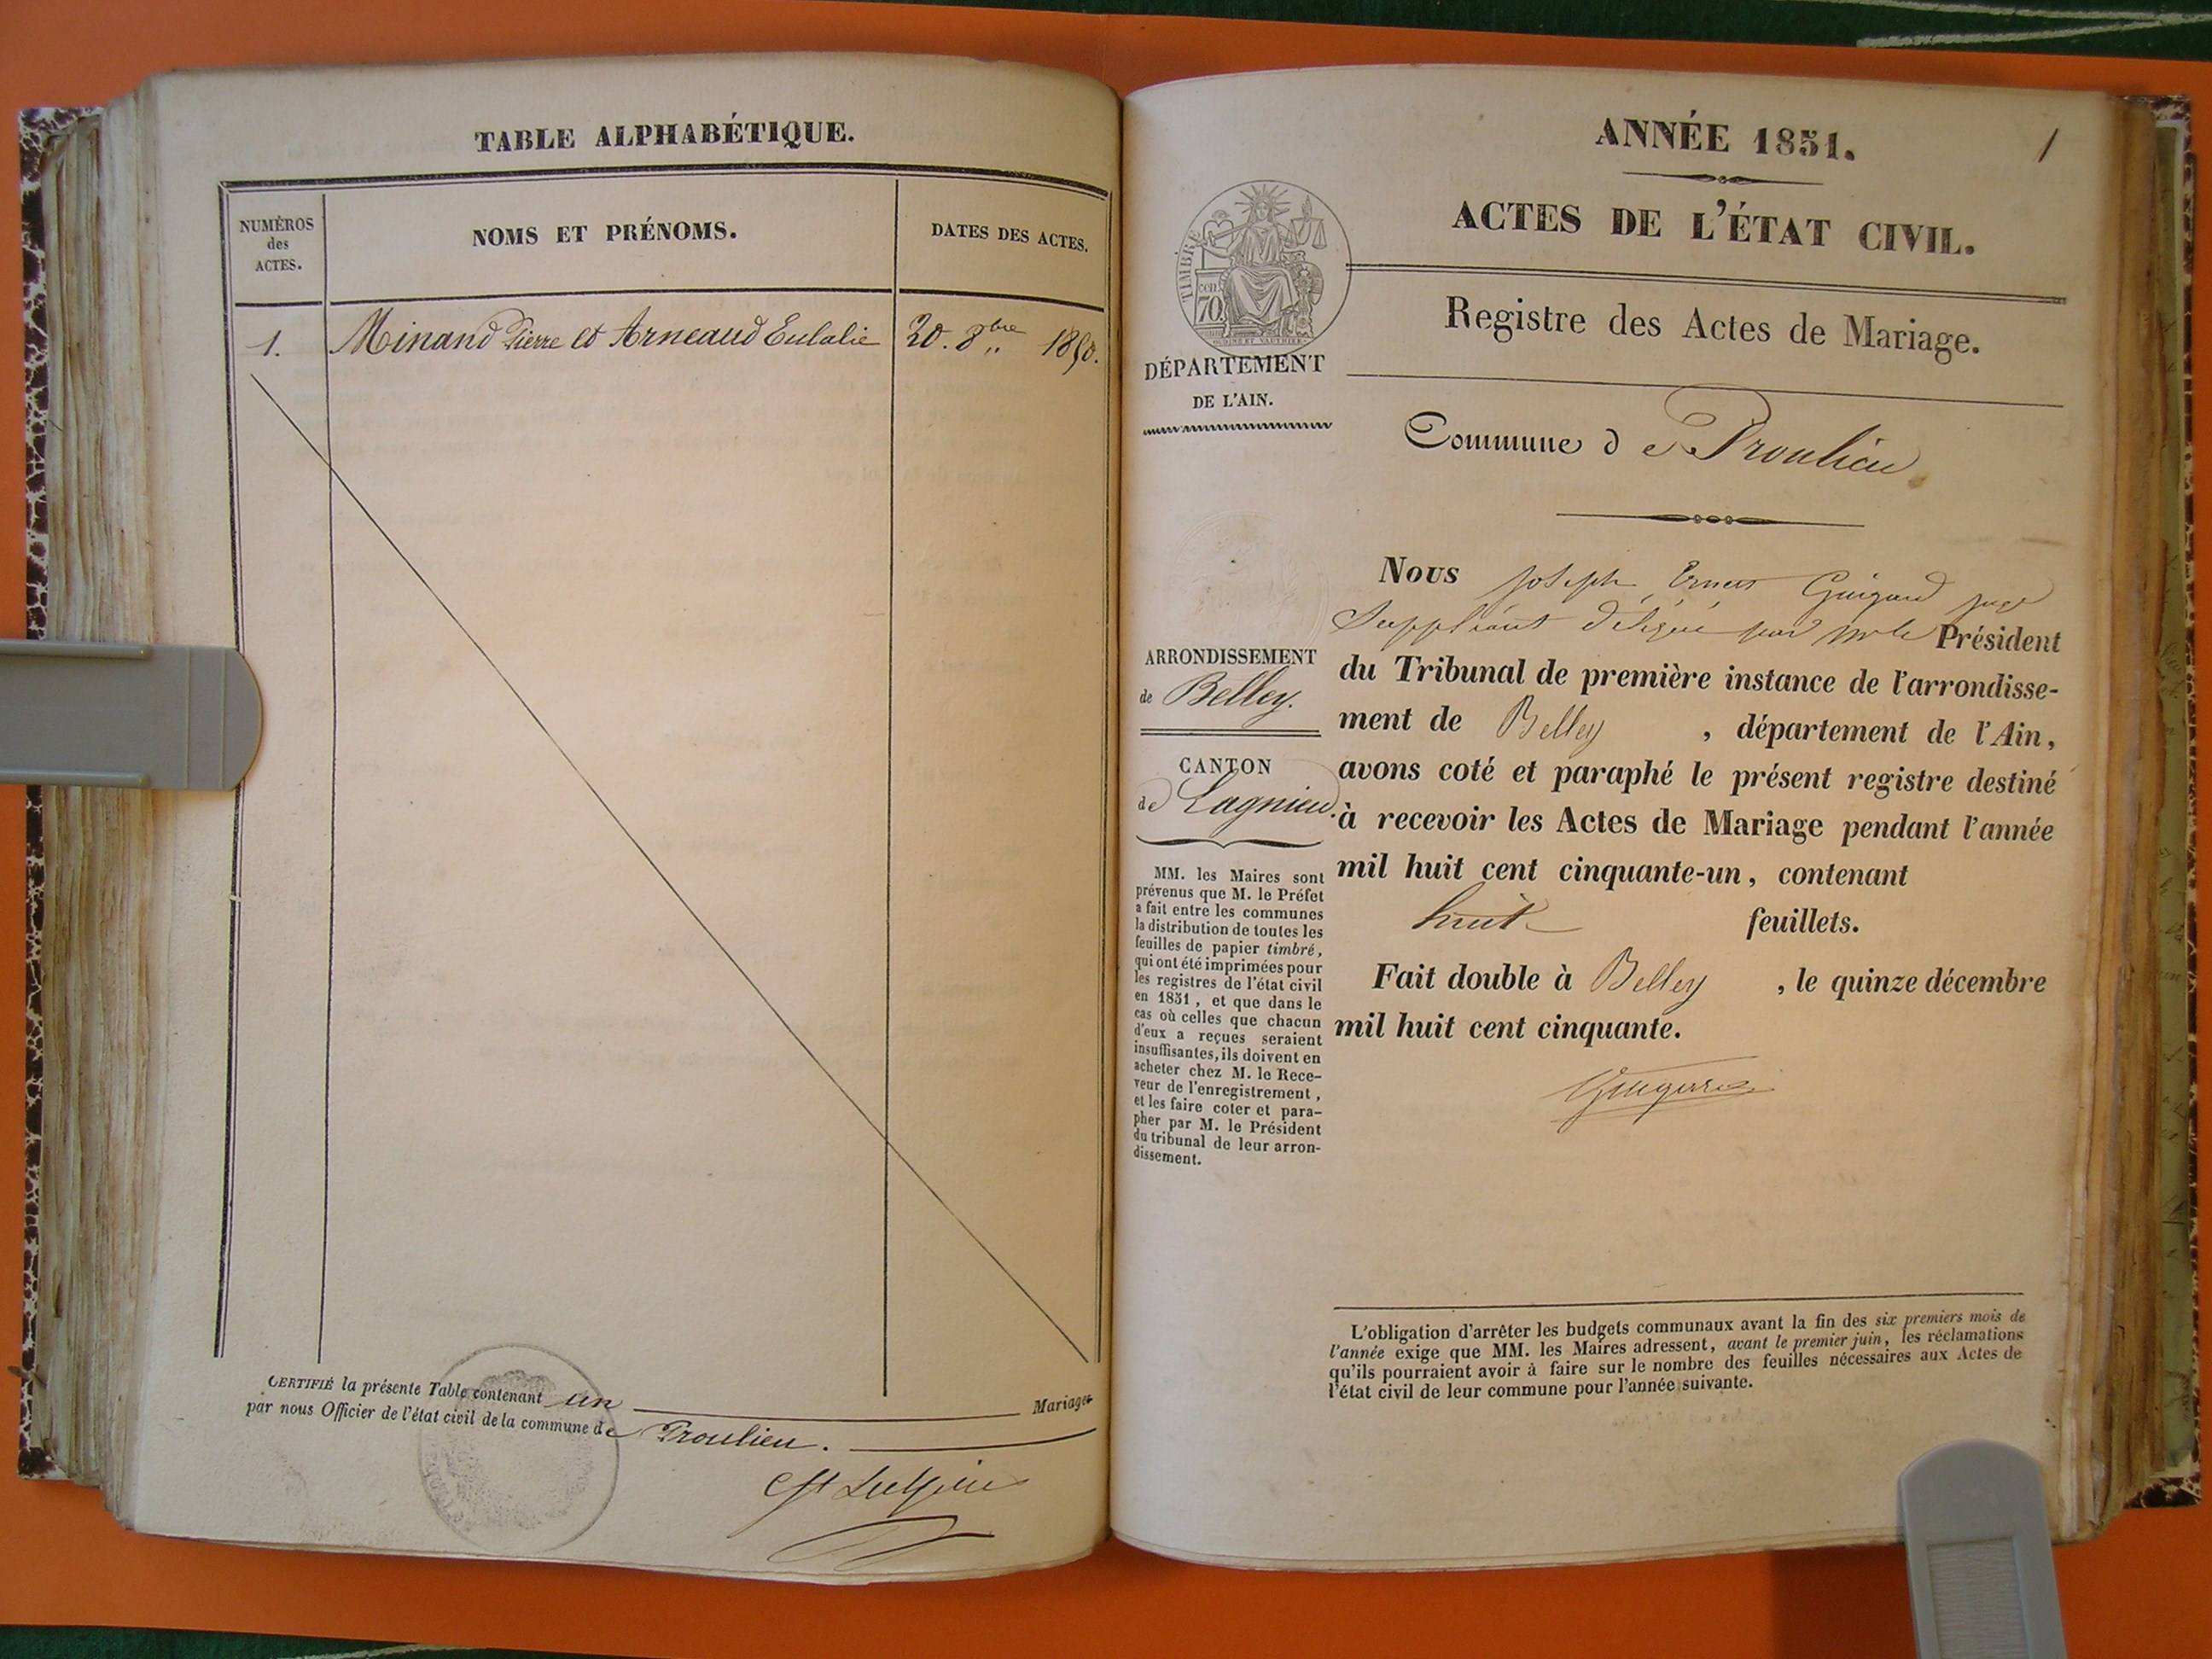 TABLE ALPHABÉTIQUE.
NUMÉROS
des
ACTES.
NOMS ET PRÉNOMS.
DATES DES ACTES.
1. Minand Pierre et Arneaud Eulalie 20. 8bre 1850.
CERTIFIÉ la présente Table contenant un Mariage
par nous Officier de l'état civil de la commune de Proulieu.
ANNÉE 1851.
1
ACTES DE L'ÉTAT CIVIL.
TIMBRE
cen
70
Registre des Actes de Mariage.
DÉPARTEMENT
DE L'AIN.
Commune de Proulieu
ARRONDISSEMENT
de Belley.
CANTON
de Lagnieu.
MM. les Maires sont
prévenus que M. le Préfet
a fait entre les communes
la distribution de toutes les
feuilles de papier timbré,
qui ont été imprimées pour
les registres de l'état civil
en 1851, et que dans le
cas où celles que chacun
d'eux a reçues seraient
insuffisantes, ils doivent en
acheter chez M. le Rece-
veur de l'enregistrement,
et les faire coter et para-
pher par M. le Président
du tribunal de leur arron-
dissement.
Nous Joseph Ernest juge
Suppléant délégué par Mr le Président
du Tribunal de première instance de l'arrondisse-
ment de Belley, département de l'Ain,
avons coté et paraphé le présent registre destiné
à recevoir les Actes de Mariage pendant l'année
mil huit cent cinquante-un, contenant
huit feuillets.
Fait double à Belley, le quinze décembre
mil huit cent cinquante.
L'obligation d'arrêter les budgets communaux avant la fin des six premiers mois de
l'année exige que MM. les Maires adressent, avant le premier juin, les réclamations
qu'ils pourraient avoir à faire sur le nombre des feuilles nécessaires aux Actes de
l'état civil de leur commune pour l'année suivante.